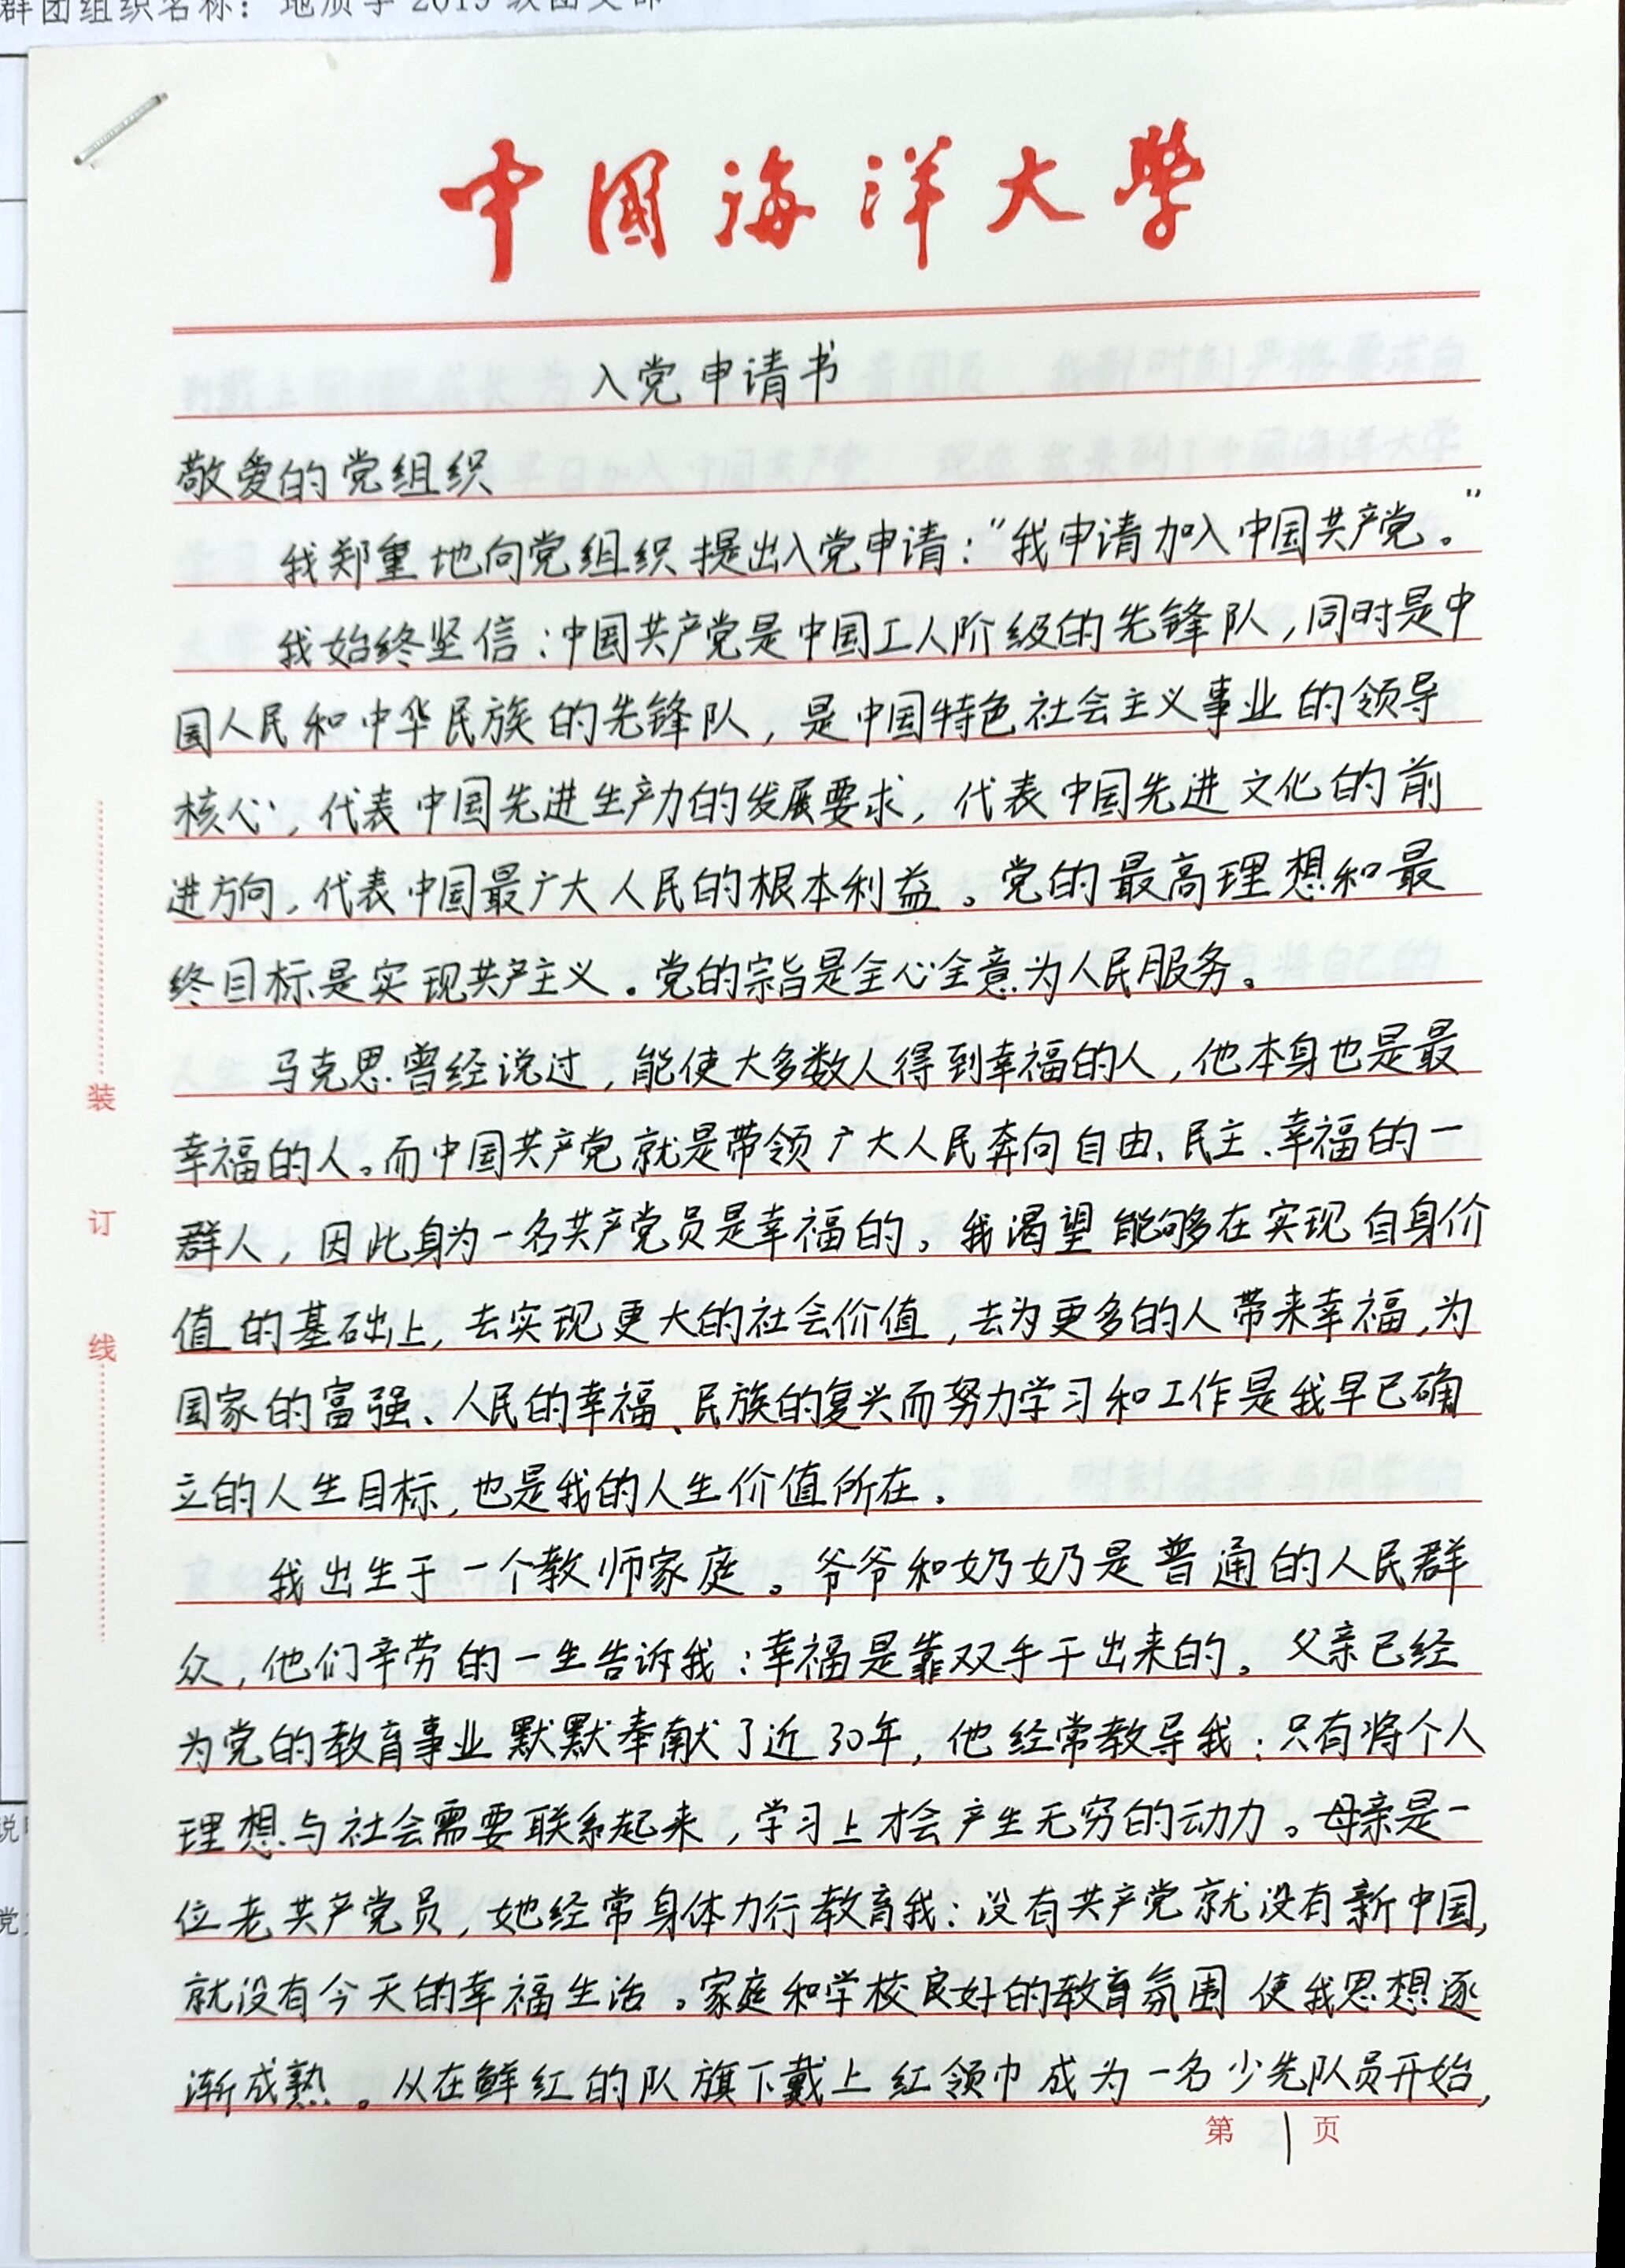 群团组织名称：地质学2019级团支部
中国海洋大学
入党申请书
敬爱的党组织
我郑重地向党组织提出入党申请：“我申请加入中国共产党。”
我始终坚信：中国共产党是中国工人阶级的先锋队，同时是中
国人民和中华民族的先锋队，是中国特色社会主义事业的领导
核心，代表中国先进生产力的发展要求，代表中国先进文化的前
进方向，代表中国最广大人民的根本利益。党的最高理想和最
终目标是实现共产主义。党的宗旨是全心全意为人民服务。
马克思曾经说过，能使大多数人得到幸福的人，他本身也是最
幸福的人。而中国共产党就是带领广大人民奔向自由、民主、幸福的一
群人，因此身为一名共产党员是幸福的。我渴望能够在实现自身价
值的基础上，去实现更大的社会价值，去为更多的人带来幸福，为
国家的富强、人民的幸福、民族的复兴而努力学习和工作是我早已确
立的人生目标，也是我的人生价值所在。
我出生于一个教师家庭。爷爷和奶奶是普通的人民群
众，他们辛劳的一生告诉我：幸福是靠双手干出来的。父亲已经
为党的教育事业默默奉献了近30年，他经常教导我：只有将个人
理想与社会需要联系起来，学习上才会产生无穷的动力。母亲是一
位老共产党员，她经常身体力行教育我：没有共产党就没有新中国，
就没有今天的幸福生活。家庭和学校良好的教育氛围使我思想逐
渐成熟。从在鲜红的队旗下戴上红领巾成为一名少先队员开始，
第1页
装
订
线